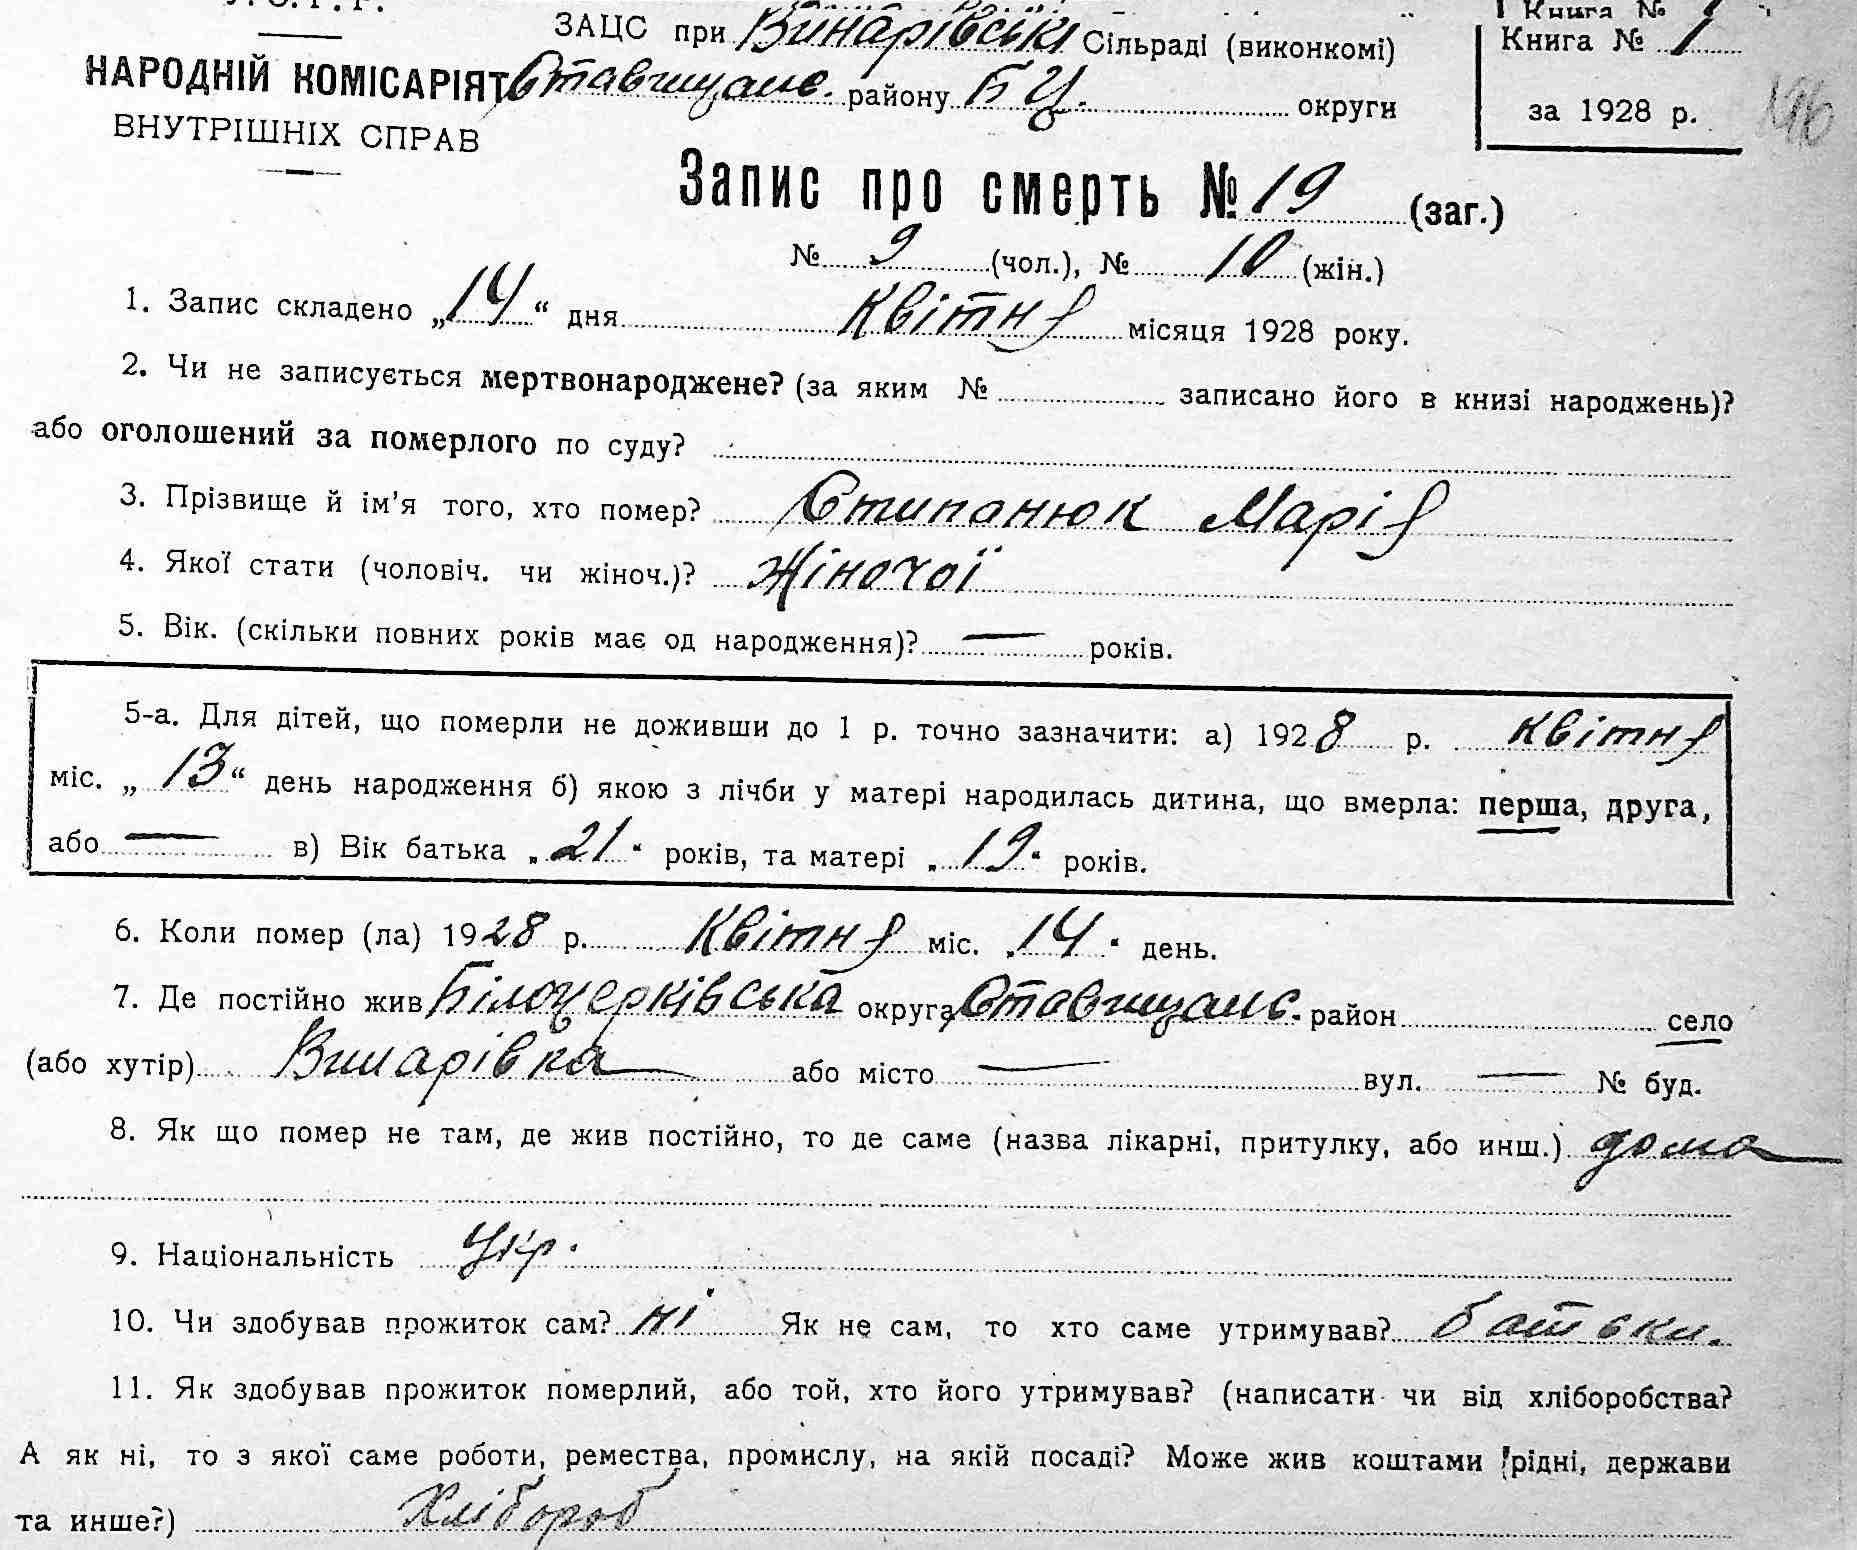 У.С.Р.Р.
НАРОДНІЙ КОМІСАРІЯТ
ВНУТРІШНІХ СПРАВ
ЗАЦС при Винарівські Сільраді (виконкомі)
Ставищанс. району БЦ. округи
Книга № 1
Книга № 1
за 1928 р.
196
Запис про смерть № 19 (заг.)
№ 9 (чол.), № 10 (жін.)
1. Запис складено „14“ дня Квітня місяця 1928 року.
2. Чи не записується мертвонароджене? (за яким № записано його в книзі народжень)?
або оголошений за померлого по суду?
3. Прізвище й ім’я того, хто помер? Стипанюк Марія
4. Якої стати (чоловіч. чи жіноч.)? Жіночої
5. Вік. (скільки повних років має од народження)? — років.
5-а. Для дітей, що померли не доживши до 1 р. точно зазначити: а) 1928 р. квітня
міс. „13“ день народження б) якою з лічби у матері народилась дитина, що вмерла: перша, друга,
або — в) Вік батька „21“ років, та матері „19“ років.
6. Коли помер (ла) 1928 р. Квітня міс. „14“ день.
7. Де постійно жив Білоцерківська округа, Ставищанс. район село
(або хутір) Винарівка або місто — вул. — № буд.
8. Як що помер не там, де жив постійно, то де саме (назва лікарні, притулку, або инш.) дома
9. Національність Укр.
10. Чи здобував прожиток сам? ні Як не сам, то хто саме утримував? батьки.
11. Як здобував прожиток померлий, або той, хто його утримував? (написати чи від хліборобства?
А як ні, то з якої саме роботи, ремества, промислу, на якій посаді? Може жив коштами рідні, держави
та инше?) Хлібороб